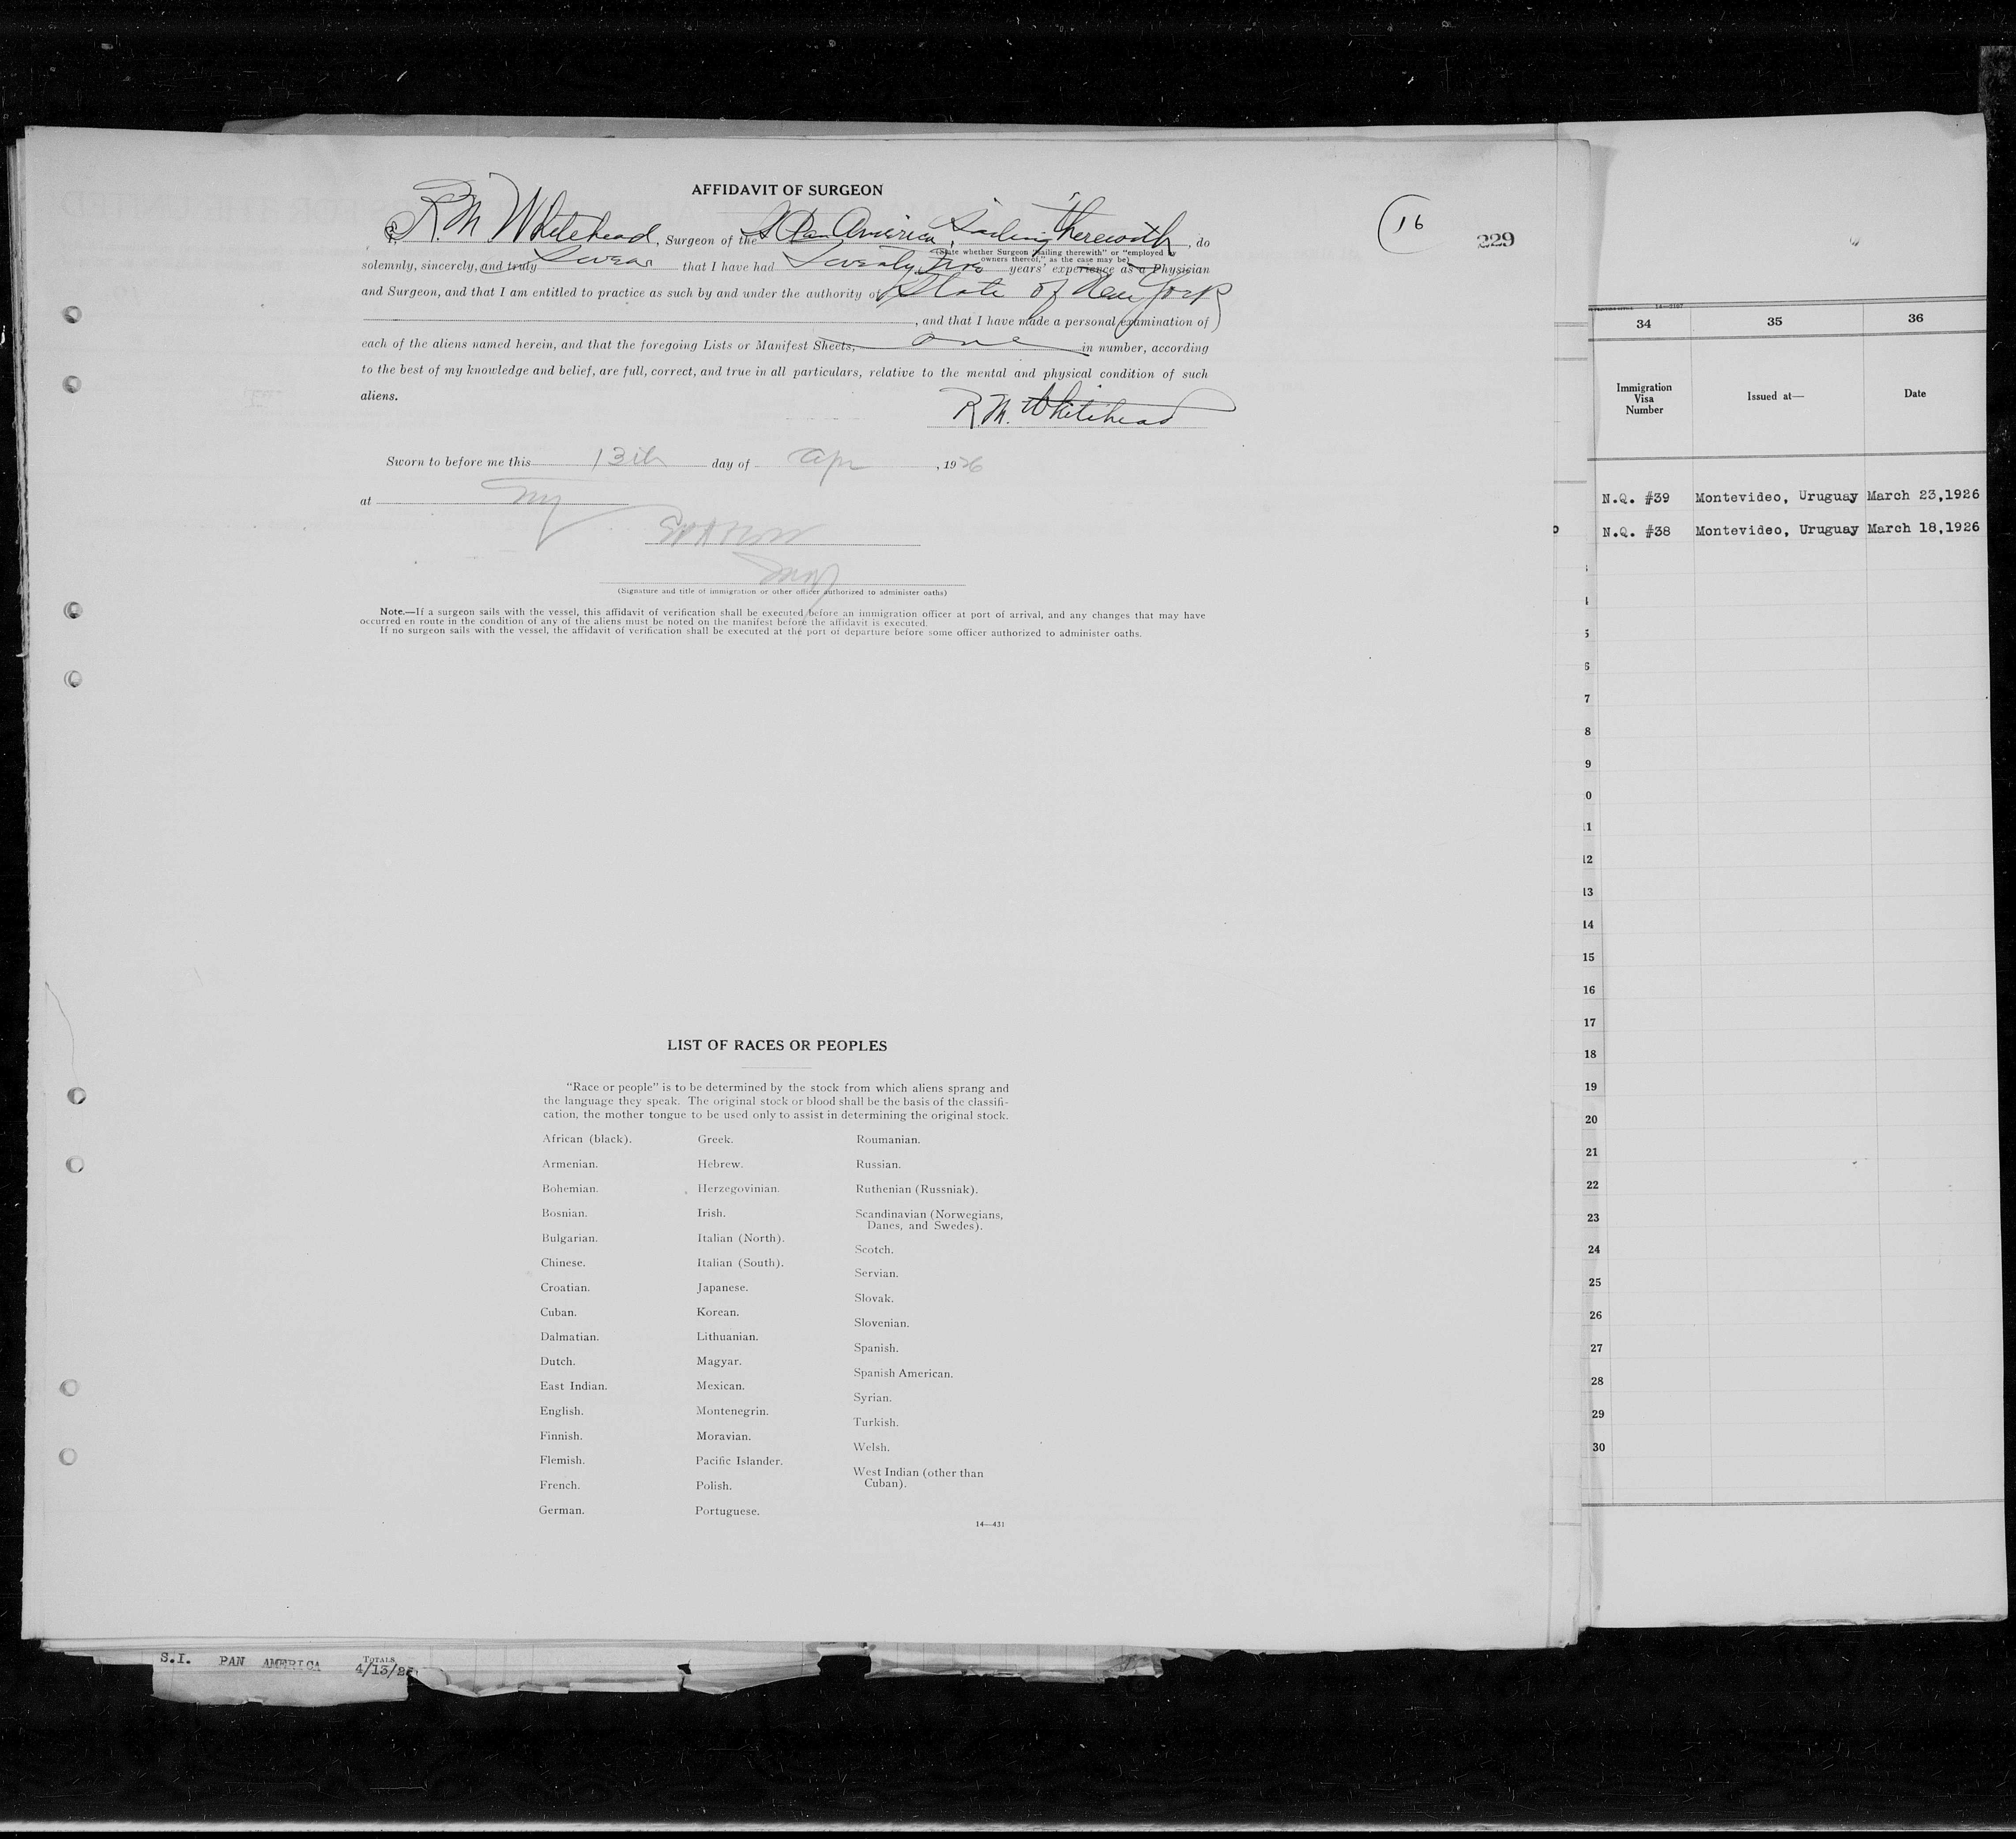 AFFIDAVIT OF SURGEON
I, R.M. Whitehead, Surgeon of the S Pan America, Sailing therewith, do
(State whether Surgeon "sailing therewith" or "employed by
owners thereof," as the case may be)
solemnly, sincerely, and truly Swear that I have had Seventy Two years' experience as a Physician
and Surgeon, and that I am entitled to practice as such by and under the authority of State of New York
, and that I have made a personal examination of
each of the aliens named herein, and that the foregoing Lists or Manifest Sheets, one in number, according
to the best of my knowledge and belief, are full, correct, and true in all particulars, relative to the mental and physical condition of such
aliens.
R.M. Whitehead
Sworn to before me this 13th day of Apr, 1926
at NY
(Signature and title of immigration or other officer authorized to administer oaths)
Note.—If a surgeon sails with the vessel, this affidavit of verification shall be executed before an immigration officer at port of arrival, and any changes that may have
occurred en route in the condition of any of the aliens must be noted on the manifest before the affidavit is executed.
If no surgeon sails with the vessel, the affidavit of verification shall be executed at the port of departure before some officer authorized to administer oaths.
16
229
LIST OF RACES OR PEOPLES
"Race or people" is to be determined by the stock from which aliens sprang and
the language they speak. The original stock or blood shall be the basis of the classifi-
cation, the mother tongue to be used only to assist in determining the original stock.
African (black).
Armenian.
Bohemian.
Bosnian.
Bulgarian.
Chinese.
Croatian.
Cuban.
Dalmatian.
Dutch.
East Indian.
English.
Finnish.
Flemish.
French.
German.
Greek.
Hebrew.
Herzegovinian.
Irish.
Italian (North).
Italian (South).
Japanese.
Korean.
Lithuanian.
Magyar.
Mexican.
Montenegrin.
Moravian.
Pacific Islander.
Polish.
Portuguese.
Roumanian.
Russian.
Ruthenian (Russniak).
Scandinavian (Norwegians,
Danes, and Swedes).
Scotch.
Servian.
Slovak.
Slovenian.
Spanish.
Spanish American.
Syrian.
Turkish.
Welsh.
West Indian (other than
Cuban).
14—431
34 35 36
Immigration
Visa
Number
Issued at—
Date
N.Q. #39 Montevideo, Uruguay March 23,1926
N.Q. #38 Montevideo, Uruguay March 18,1926
5
6
7
8
9
0
11
12
13
14
15
16
17
18
19
20
21
22
23
24
25
26
27
28
29
30
S.I. PAN AMERICA TOTALS
4/13/26